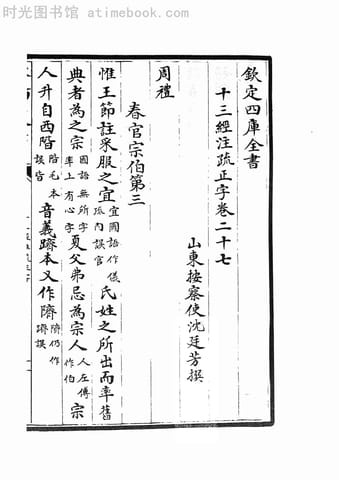 时光图书馆 atimebook.com
欽定四庫全書
十三經注疏正字卷二十七
山東按察使沈廷芳撰
周禮
春官宗伯第三
惟王節註采服之宜宜國語作儀誤官氏姓之所出而率舊
典者為之宗國語無所字率上有心字夏父弗忌為宗人人左傳作伯宗
人升自西階階毛本誤皆音義躋本又作隮仍作誤